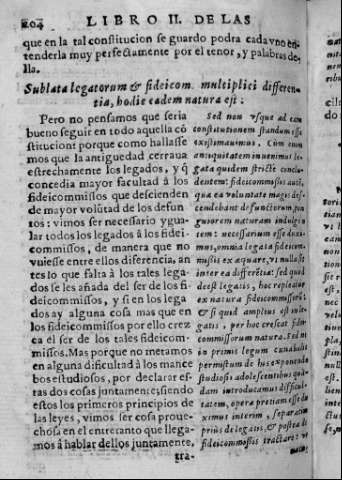 204 LIBRO II. DE LAS
que en la tal constitucion se guardo podra cada vno en-
tenderla muy perfectamente por el tenor, y palabras de-
lla.
Sublata legatorum & fideicom. multiplici differen-
tia, hodie eadem natura est:
Pero no pensamos que seria
bueno seguir en todo aquella cō
stitucion: porque como hallasse
mos que la antiguedad cerraua
estrechamente los legados, y q̄
concedia mayor facultad à los
fideicommissos que descienden
de mayor volūtad de los defun
tos: vimos ser necessario ygua-
lar todos los legados à los fidei-
commissos, de manera que no
vuiesse entre ellos diferencia, an
tes lo que falta à los tales lega-
dos se les añada del ser de los fi-
deicommissos, y si en los lega-
dos ay alguna cosa mas que en
los fideicommissos por ello crez
ca el ser de los tales fideicom-
missos. Mas porque no metamos
en alguna dificultad à los mance
bos estudiosos, por declarar es-
tas dos cosas juntamente, siendo
estos los primeros principios de
las leyes, vimos ser cosa proue-
chosa en el entretanto que llega-
mos à hablar dellos juntamente,
tra-
Sed non vsque ad eam
constitutionem standum esse
existimauimus. Cùm enim
antiquitatem inuenimus le-
gata quidem strictè conclu-
dentem: fideicommissis autē,
quæ ex voluntate magis des-
cendebant defunctorum, pin
guiorem naturam indulgen
tem: necessarium esse duxi-
mus, omnia legata fideicom-
missis exæquare, vt nulla sit
inter ea differētia: sed quod
deest legatis, hoc repleatur
ex natura fideicommissorū:
& si quid amplius est in le-
gatis, per hoc crescat fidei-
commissorum natura. Sed ne
in primis legum cunabulis
permixtim de his exponendo
studiosis adolescentibus quā
dam introducamus difficul-
tatem, operæ pretium esse du
ximus interim, separatim
priùs de legatis, & postea de
fideicommissis tractare: vt